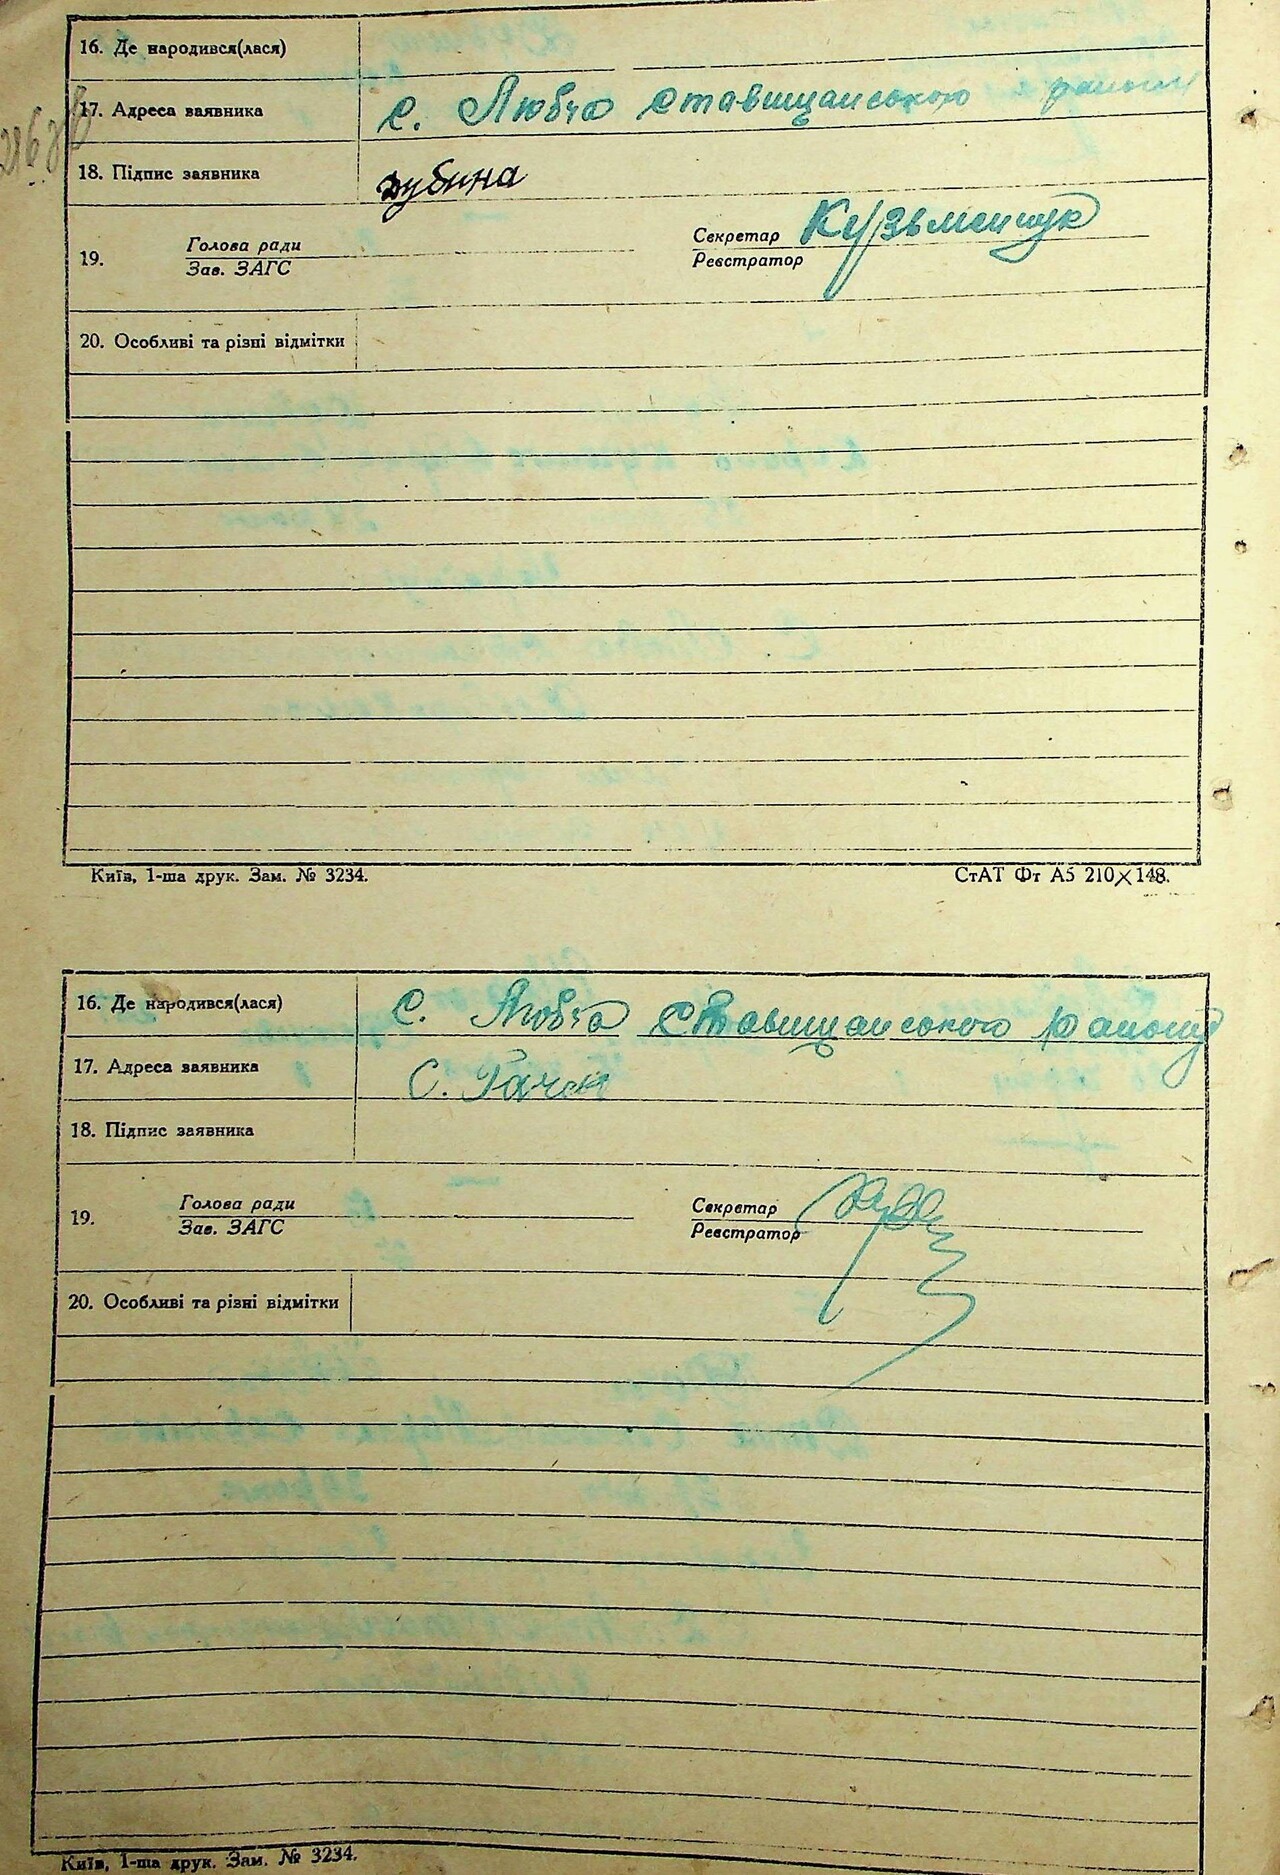 16. Де народився(лася)
17. Адреса заявника с. Любча Ставищанського району
18. Підпис заявника зубина
19. Голова ради Секретар Кузьменчук
Зав. ЗАГС Реєстратор
20. Особливі та різні відмітки
Київ, 1-ша друк. Зам. № 3234. СтАТ Фт А5 210×148.
16. Де народився(лася) С. Любча Ставищанського району
17. Адреса заявника С.
18. Підпис заявника
19. Голова ради Секретар
Зав. ЗАГС Реєстратор
20. Особливі та різні відмітки
Київ, 1-ша друк. Зам. № 3234.